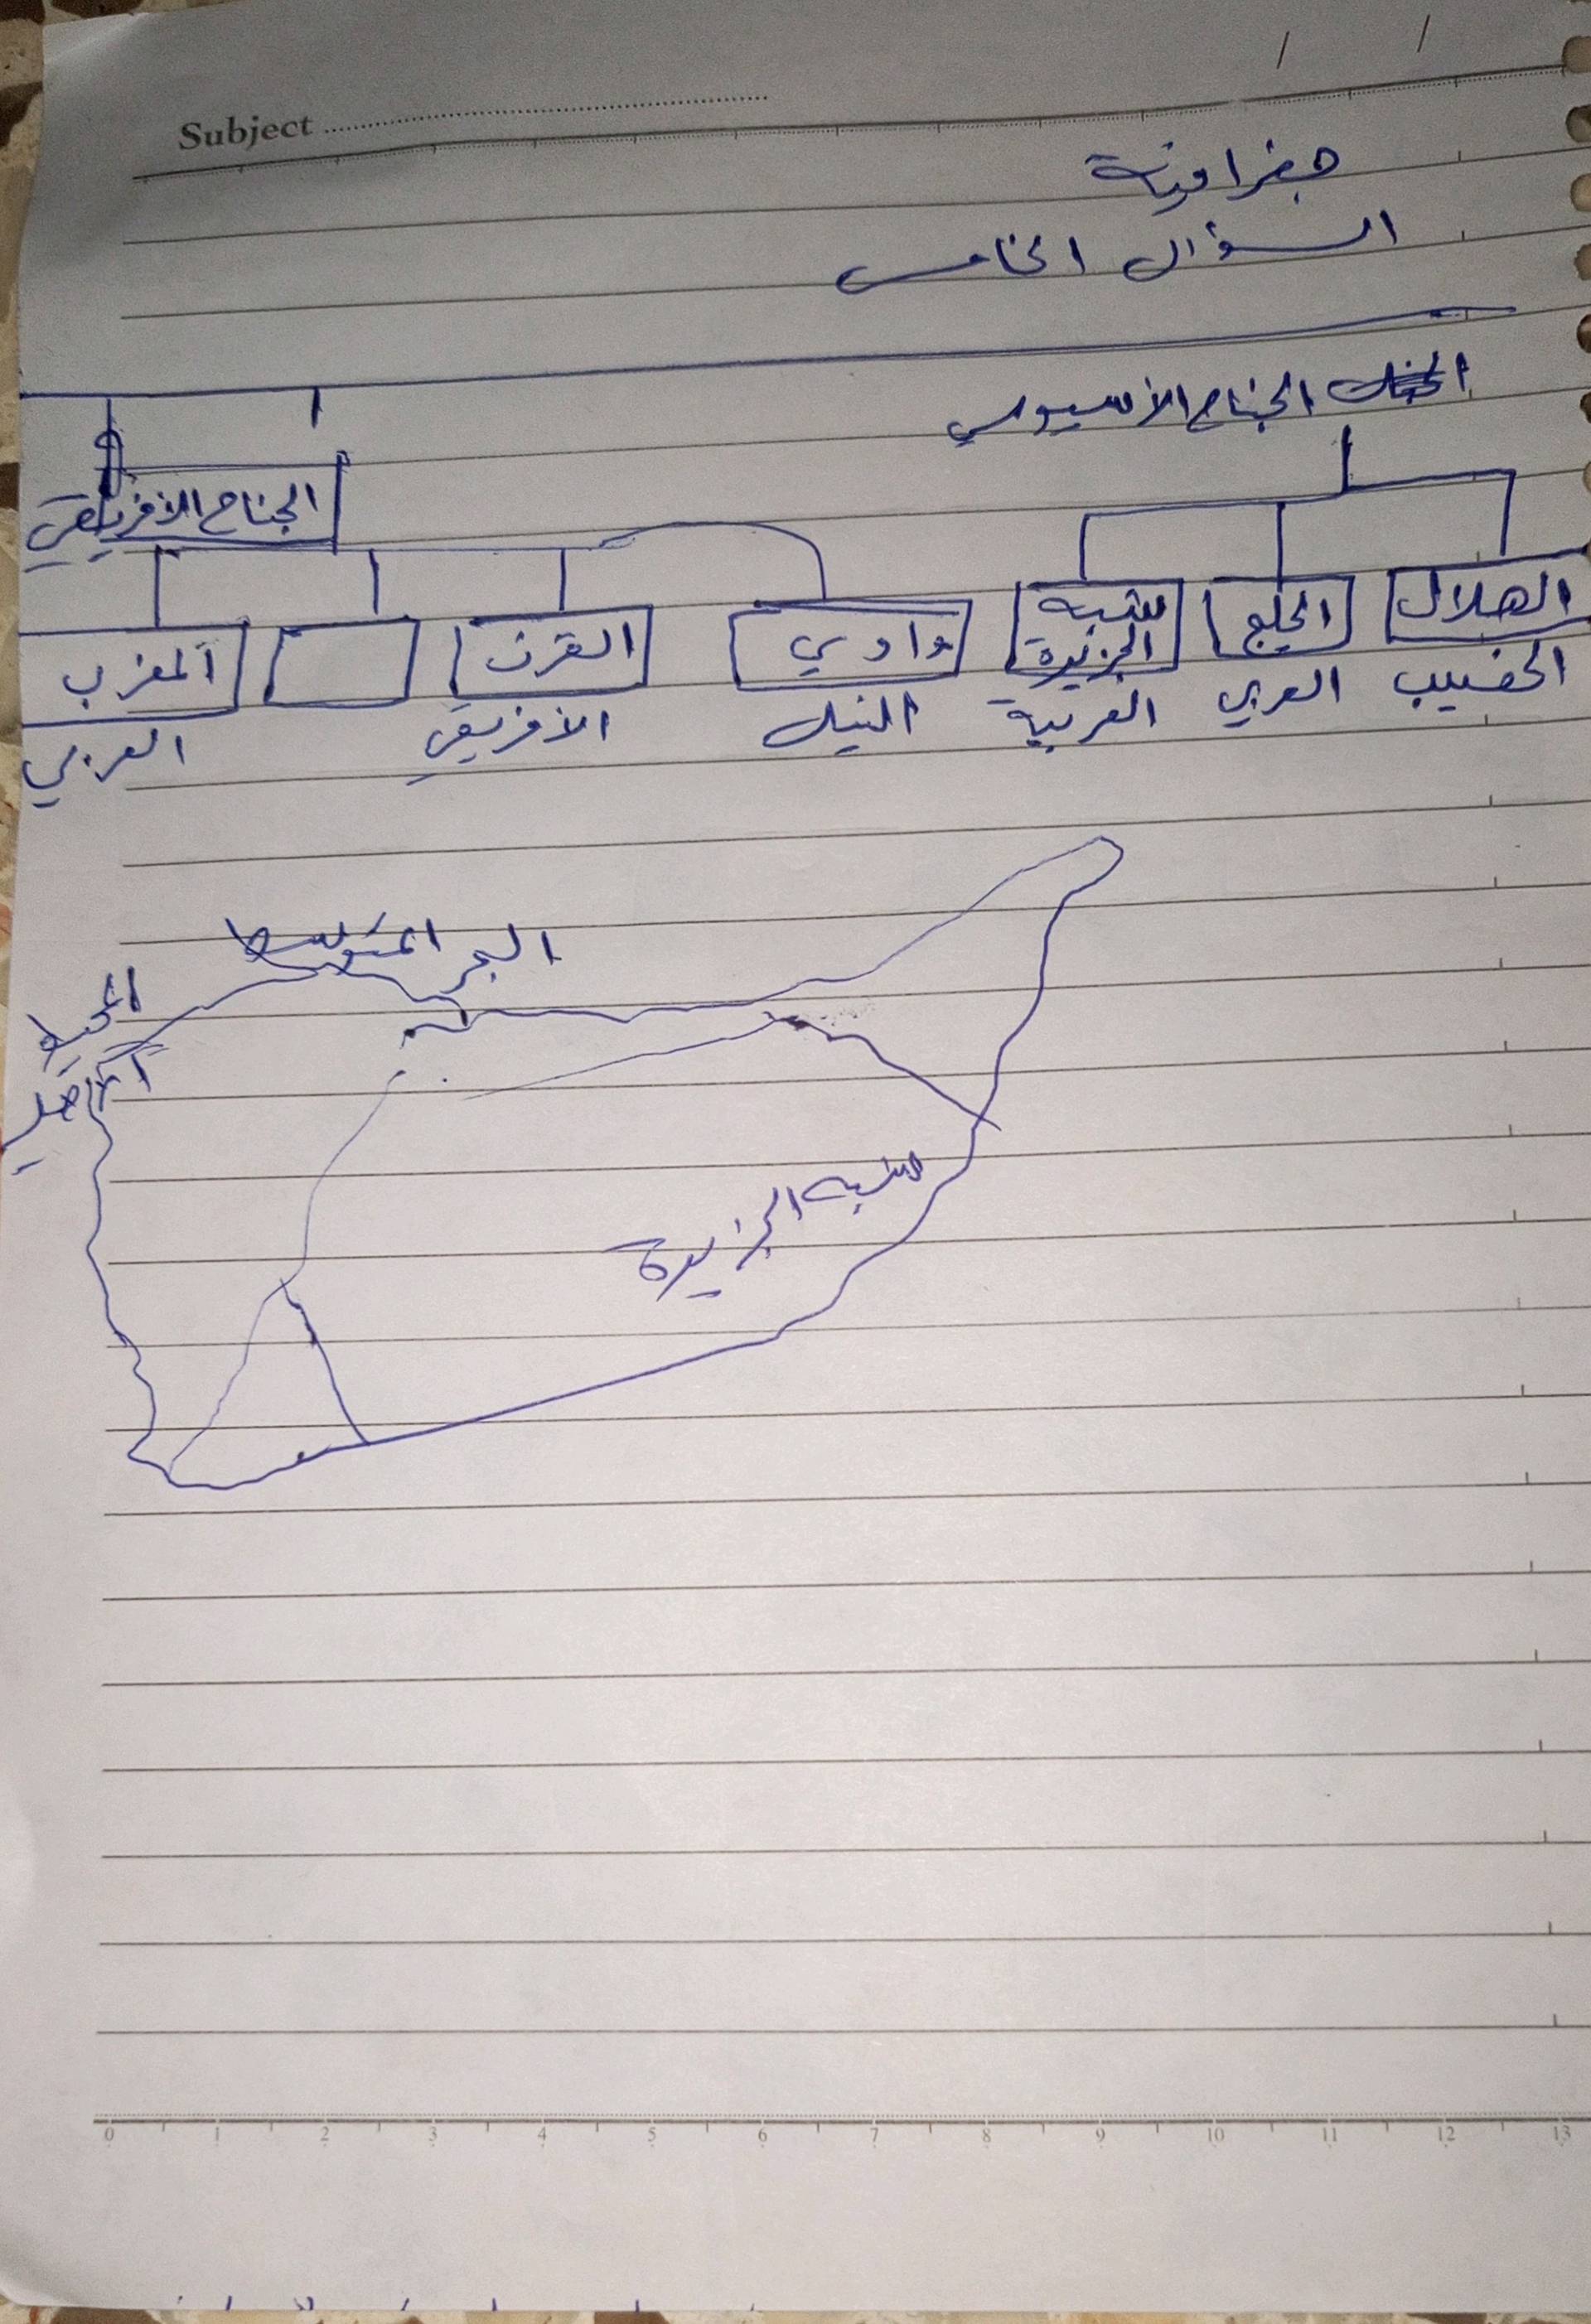 Subject
جغرافية
السؤال الخامس
الجناح الأسيوي
الجناح الافريقي
الهلال
الخصيب
الخليج
العربي
شبه
الجزيرة
العربية
وادي
النيل
القرن
الأفريقي
المغرب
العربي
البحر المتوسط
المحيط
شبه الجزيرة
0 1 2 3 4 5 6 7 8 9 10 11 12 13